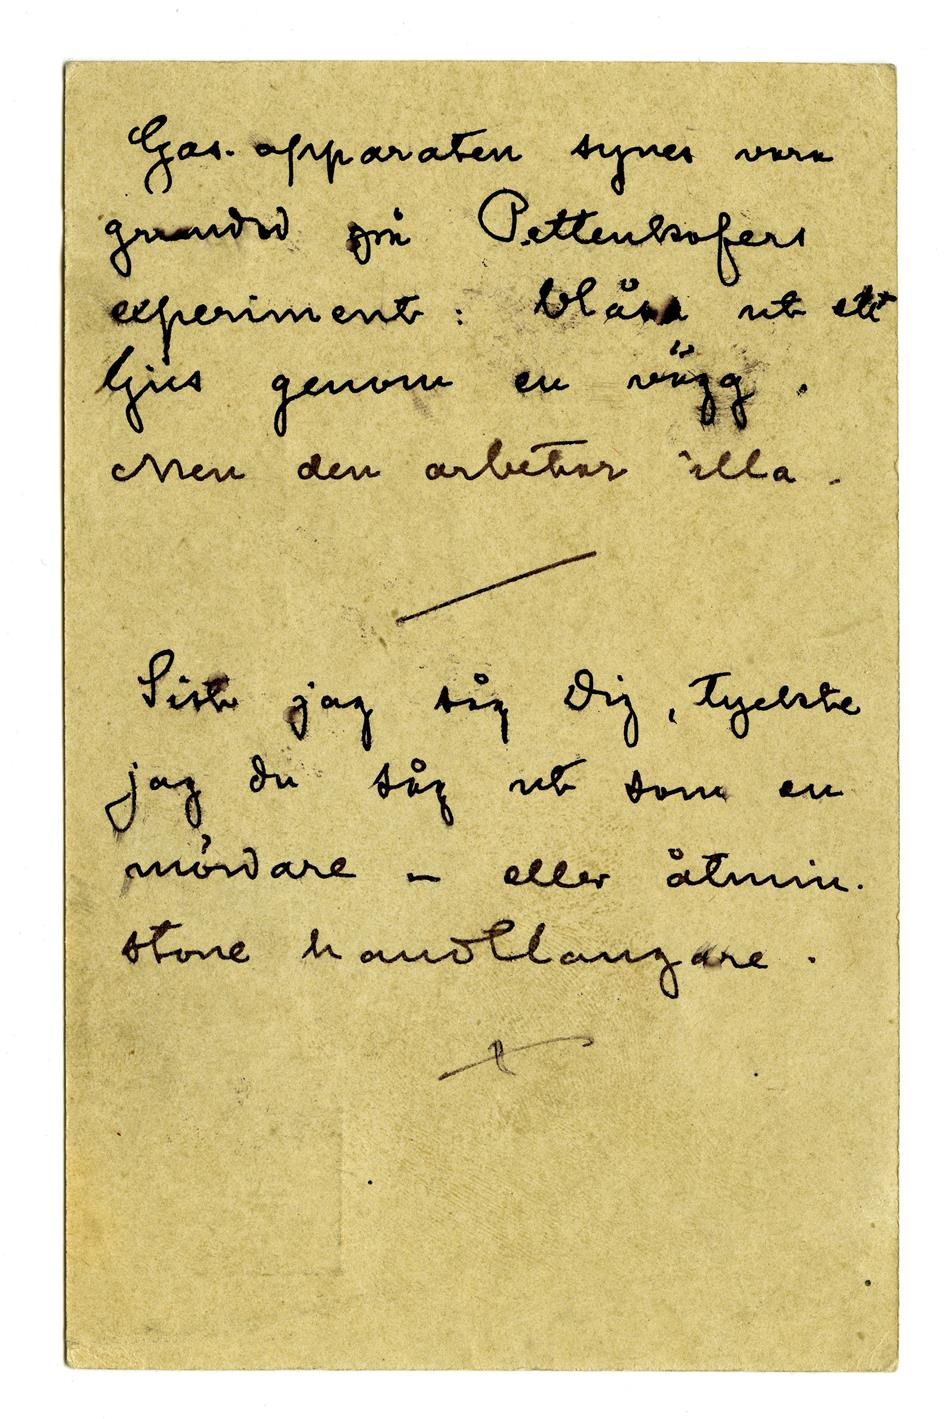 Gas-apparaten synes vara
grundad på Pettenkofers
experiment: blåsa ut ett
ljus genom en vägg.
Men den arbetar illa.
Sist jag såg Dig, tyckte
jag du såg ut som en
mördare – eller åtmin-
stone handtlangare.